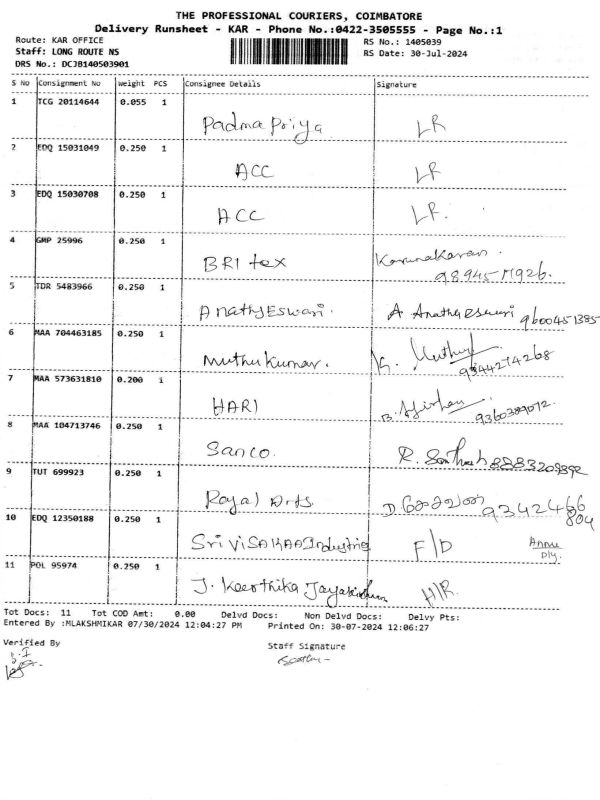 THE PROFESSIONAL COURIERS, COIMBATORE
Delivery Runsheet - KAR - Phone No.:0422-3505555 - Page No.:1
Route: KAR OFFICE RS No.: 1405039
Staff: LONG ROUTE NS RS Date: 30-Jul-2024
DRS No.: DCJB140503901
S No Consignment No Weight PCS Consignee Details Signature
1 TCG 20114644 0.055 1
Padma Priya LR
2 EDQ 15031049 0.250 1
ACC LR
3 EDQ 15030708 0.250 1
ACC LR.
4 GMP 25996 0.250 1
BRI tex Karunakaran.
5 TDR 5483966 0.250 1
AnathyEswari. A Anathyeswari 9600451385
6 MAA 704463185 0.250 1
Muthukumar. K. 9344274268
7 MAA 573631810 0.200 1
HARI B. 9360389072.
8 MAA 104713746 0.250 1
Sanco. R. Santhosh
9 TUT 699923 0.250 1
Royal Arts D. 9342466
804
10 EDQ 12350188 0.250 1
Sri VISAKAA Industries F/D
11 POL 95974 0.250 1
J. Keerthika H/R.
Tot Docs: 11 Tot COD Amt: 0.00 Delvd Docs: Non Delvd Docs: Delvy Pts:
Entered By :MLAKSHMIKAR 07/30/2024 12:04:27 PM Printed On: 30-07-2024 12:06:27
Verified By Staff Signature